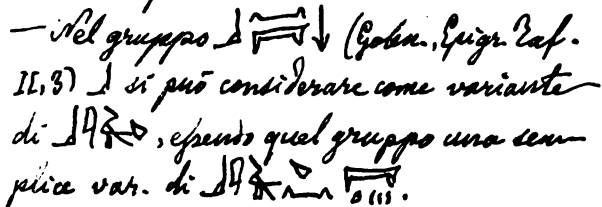 — Nel gruppo (Golen., Epigr. Taf.
II, 3) si può considerare come variante
di , essendo quel gruppo una sem-
plice var. di .